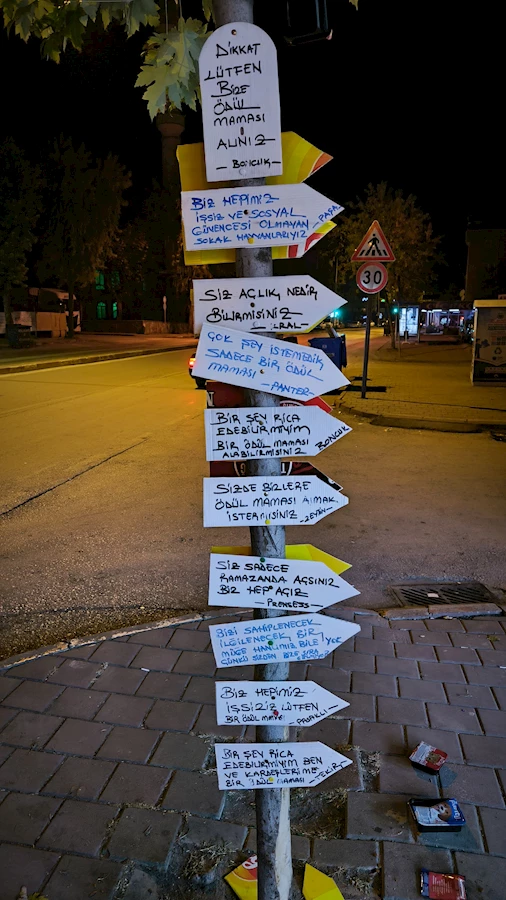 DİKKAT
LÜTFEN
BİZE
ÖDÜL
MAMASI
ALINIZ
- BONCUK -
BİZ HEPİMİZ
İŞSİZ VE SOSYAL
GÜVENCESİ OLMAYAN
SOKAK HAYVANLARIYIZ
SİZ AÇLIK NEDİR
BİLİRMİSİNİZ
ÇOK ŞEY İSTEMEDİK
SADECE BİR ÖDÜL
MAMASI
- PANTER -
BİR ŞEY RİCA
EDEBİLİRMİYİM
BİR ÖDÜL MAMASI
ALABİLİRMİSİNİZ
BONCUK
SİZDE BİZLERE
ÖDÜL MAMASI ALMAK
İSTERMİSİNİZ
- ZEYTİN -
SİZ SADECE
RAMAZANDA AÇSINIZ
BİZ HEP AÇIZ
- PRENSESS -
BİZİ SAHİPLENECEK
İLGİLENECEK BİR
MÜGE HANLIMIZ BİLE YOK
ÇÜNKÜ SİZDEN BİZE SIRA
BİZ HEPİMİZ
İŞSİZİZ LÜTFEN
BİR ÖDÜL
- PAMUKLU -
BİR ŞEY RİCA
EDEBİLİRMİYİM BEN
VE KARDEŞLERİME
BİR ÖDÜL MAMASI
- TEKİR -
30